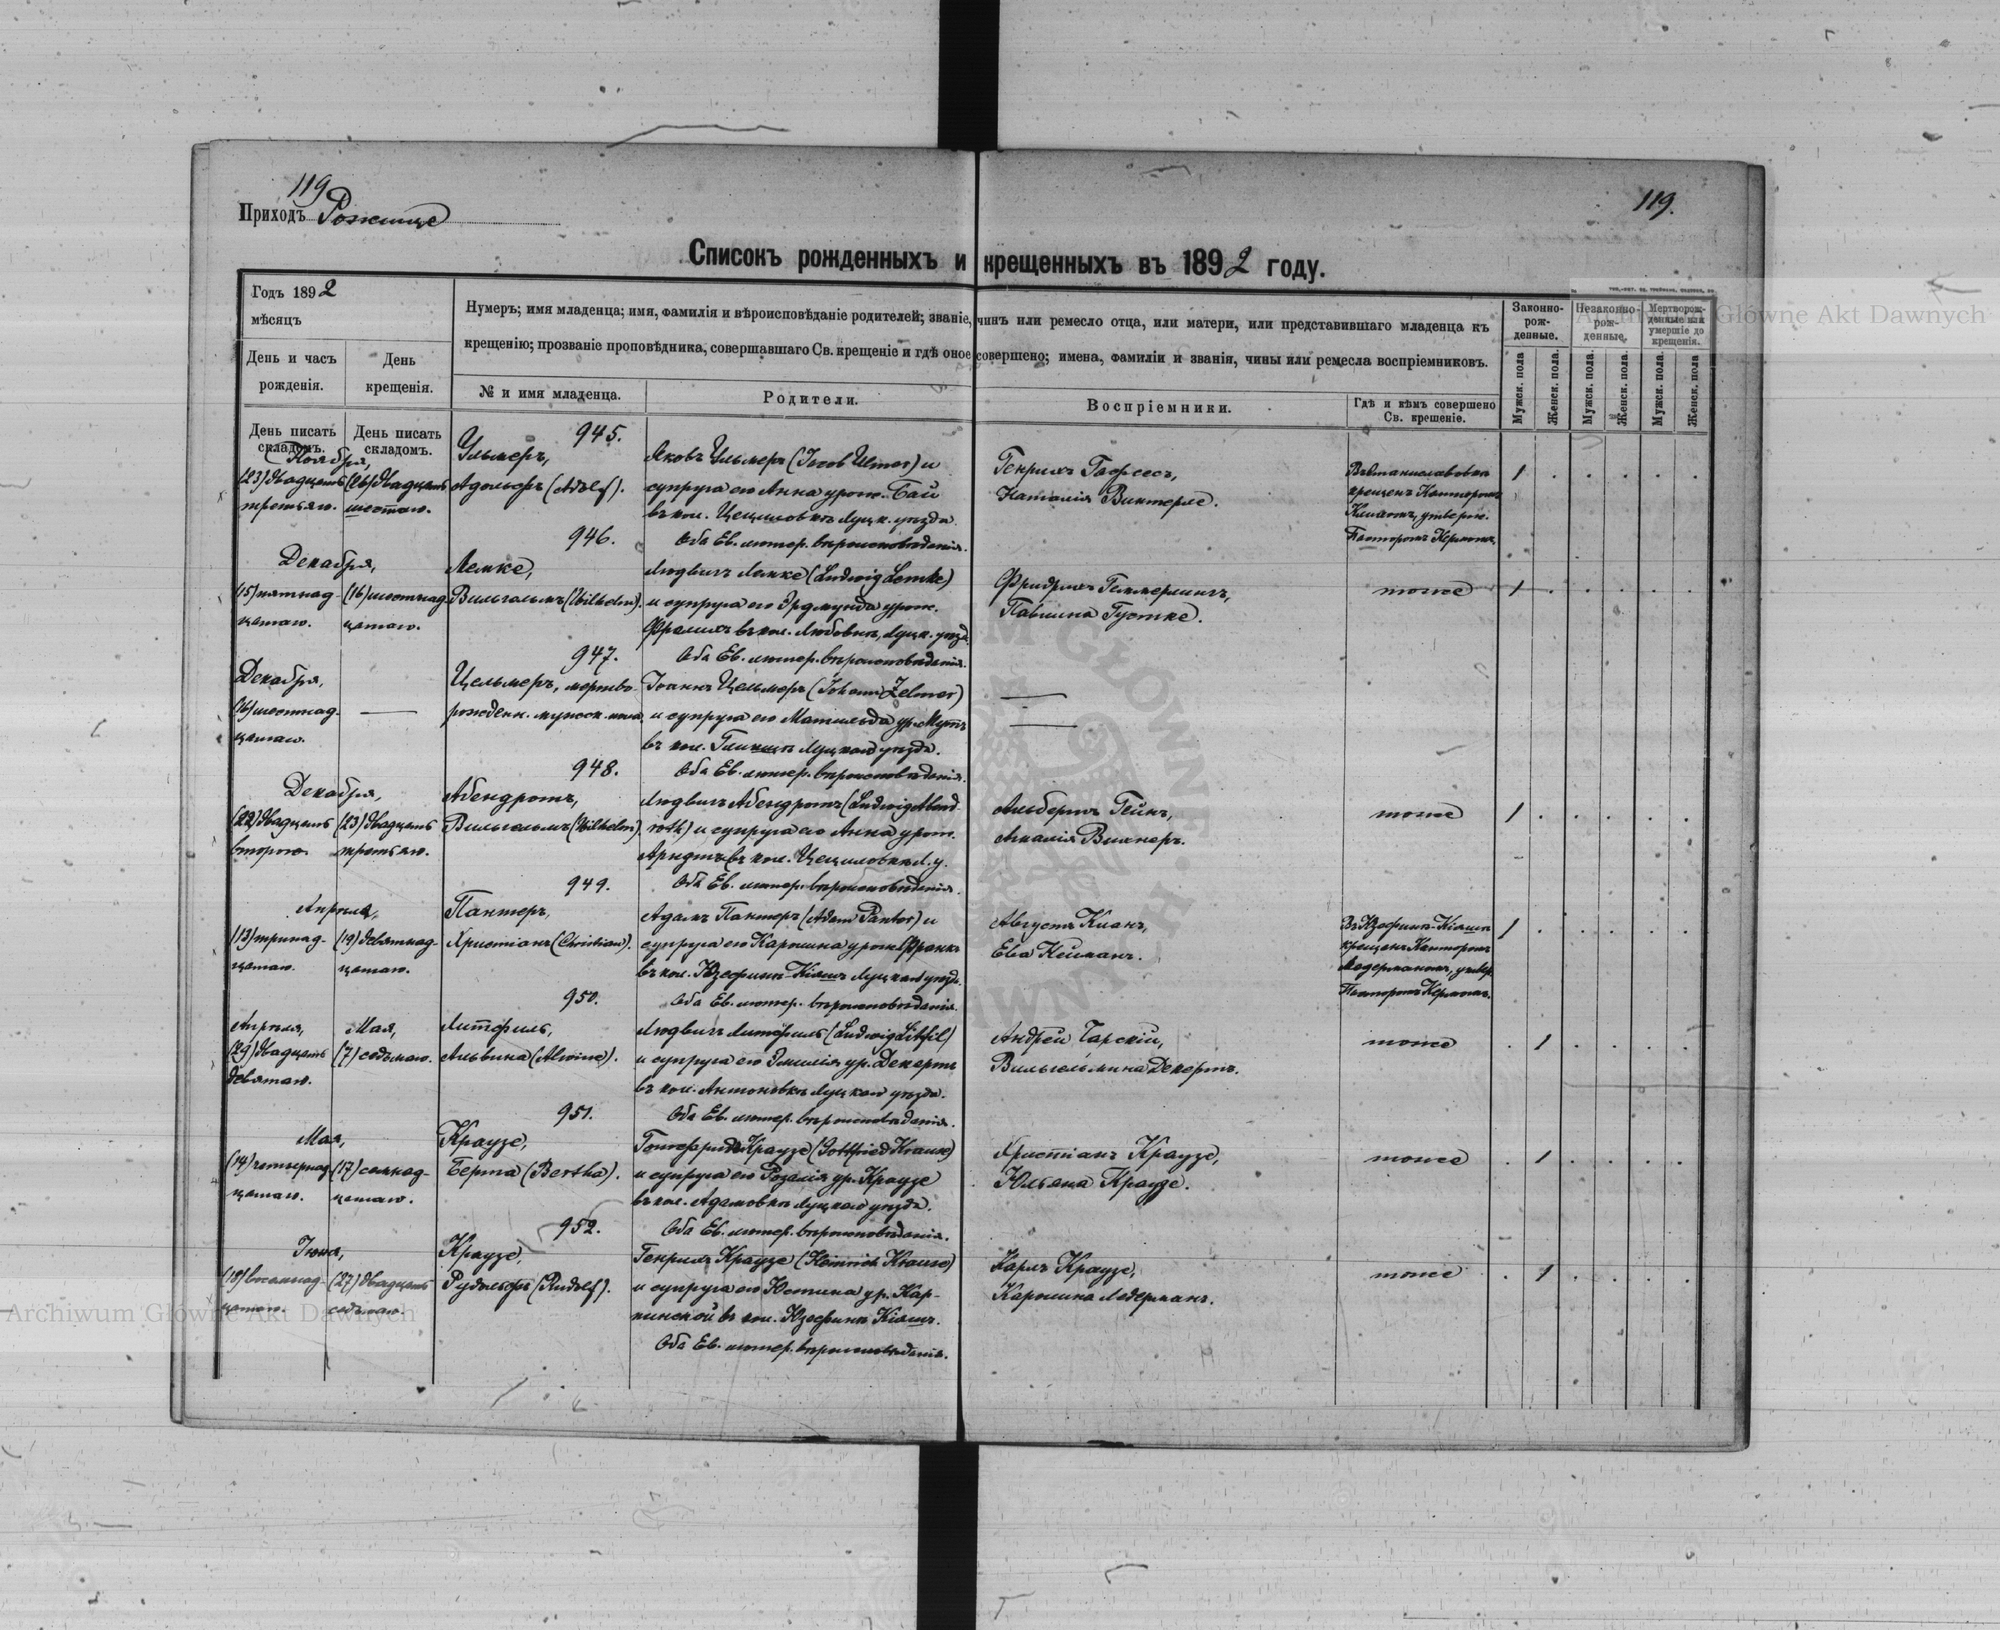 119
119.
Приходъ Рожище
Списокъ рожденныхъ и крещенныхъ въ 1892 году.
Годъ 1892
мѣсяцъ
День и часъ рожденія.
День крещенія.
Нумеръ; имя младенца; имя, фамилія и вѣроисповѣданіе родителей; званіе, чинъ или ремесло отца, или матери, или представившаго младенца къ
крещенію; прозваніе проповѣдника, совершавшаго Св. крещеніе и гдѣ оное совершено; имена, фамиліи и званія, чины или ремесла воспріемниковъ.
№ и имя младенца.
Родители.
Воспріемники.
Гдѣ и кѣмъ совершено
Св. крещеніе.
Законно-
рож-
денные.
Незаконно-
рож-
денные.
Мертворож-
денные или
умершіе до
крещенія.
Мужск. пола
Женск. пола.
Мужск. пола.
Женск. пола.
Мужск. пола.
Женск. пола
День писать
складомъ.
День писать
складомъ.
945.
Ноября,
(23) двадцать
третьяго.
(26) двадцать
шестаго.
Ульмеръ,
Адольфъ (Adolf).
Яковъ Ульмеръ (Jacob Ulmer) и
супруга его Анна урож. Бай
въ кол. Цециловкѣ Луцк. уѣзда.
Оба Ев. лютер. вѣроисповѣданія.
Генрихъ
Наталія Винтерле.
крещенъ Канторомъ
Пасторомъ Керномъ.
1
946.
Декабря,
(15) пятнад-
цатаго.
(16) шестнад-
цатаго.
Лемке,
Вильгельмъ (Wilhelm).
Людвигъ Лемке (Ludwig Lemke)
и супруга его Эрдмунда урож.
въ кол. Любовкѣ, Луцк. уѣзд.
Оба Ев. лютер. вѣроисповѣданія.
Фридрихъ Геммерлингъ,
Павлина Густке.
тоже
1
947.
Декабря,
(16) шестнад-
цатаго.
Цельмеръ, мертво-
рожденн. мужск. пола
Іоаннъ Цельмеръ (Johann Zelmer)
и супруга его Матильда ур. Мутъ
въ кол. Луцкаго уѣзда.
Оба Ев. лютер. вѣроисповѣданія.
948.
Декабря,
(22) двадцать
второго
(23) двадцать
третьяго.
Абендротъ,
Вильгельмъ (Wilhelm).
Людвигъ Абендротъ (Ludwig Abend-
roth) и супруга его Анна урож.
Арндтъ въ кол. Цециловкѣ Л. у.
Оба Ев. лютер. вѣроисповѣданія.
Альбертъ Гейнъ,
Амалія
тоже
1
949.
Апрѣля,
(13) тринад-
цатаго.
(19) девятнад-
цатаго.
Пантеръ,
Христіанъ (Christian).
Адамъ Пантеръ (Adam Panter) и
супруга его Каролина урож. Франкъ
въ кол. Юзефинъ Луцкаго уѣзда.
Оба Ев. лютер. вѣроисповѣданія.
Августъ
Ева Нейманъ.
крещенъ Канторомъ
Ледерманомъ, утвер.
Пасторомъ Керномъ.
1
950.
Апрѣля,
(29) двадцать
девятаго.
Мая,
(7) седьмаго.
Литфиль,
Альвина (Alwine).
Людвигъ Литфиль (Ludwig Litfil)
и супруга его Эмилія ур. Декертъ
въ кол. Антоновкѣ Луцкаго уѣзда.
Оба Ев. лютер. вѣроисповѣданія.
Андрей Чарскій,
Вильгельмина Декертъ.
тоже
1
951.
Мая,
(14) четырнад-
цатаго.
(17) семнад-
цатаго.
Краузе,
Берта (Bertha).
Готфридъ Краузе (Gottfried Krause)
и супруга его Розалія ур. Краузе
въ кол. Адамовкѣ Луцкаго уѣзда.
Оба Ев. лютер. вѣроисповѣданія.
Христіанъ Краузе,
Юльяна Краузе.
тоже
1
952.
Іюня,
(18) восемнад-
цатаго.
(27) двадцать
седьмаго.
Краузе,
Рудольфъ (Rudolf).
Генрихъ Краузе (Heinrich Krause)
и супруга его Юстина ур. Кар-
пинской въ кол. Юзефинъ
Оба Ев. лютер. вѣроисповѣданія.
Карлъ Краузе,
Каролина Ледерманъ.
тоже
1
Archiwum Główne Akt Dawnych
Archiwum Główne Akt Dawnych